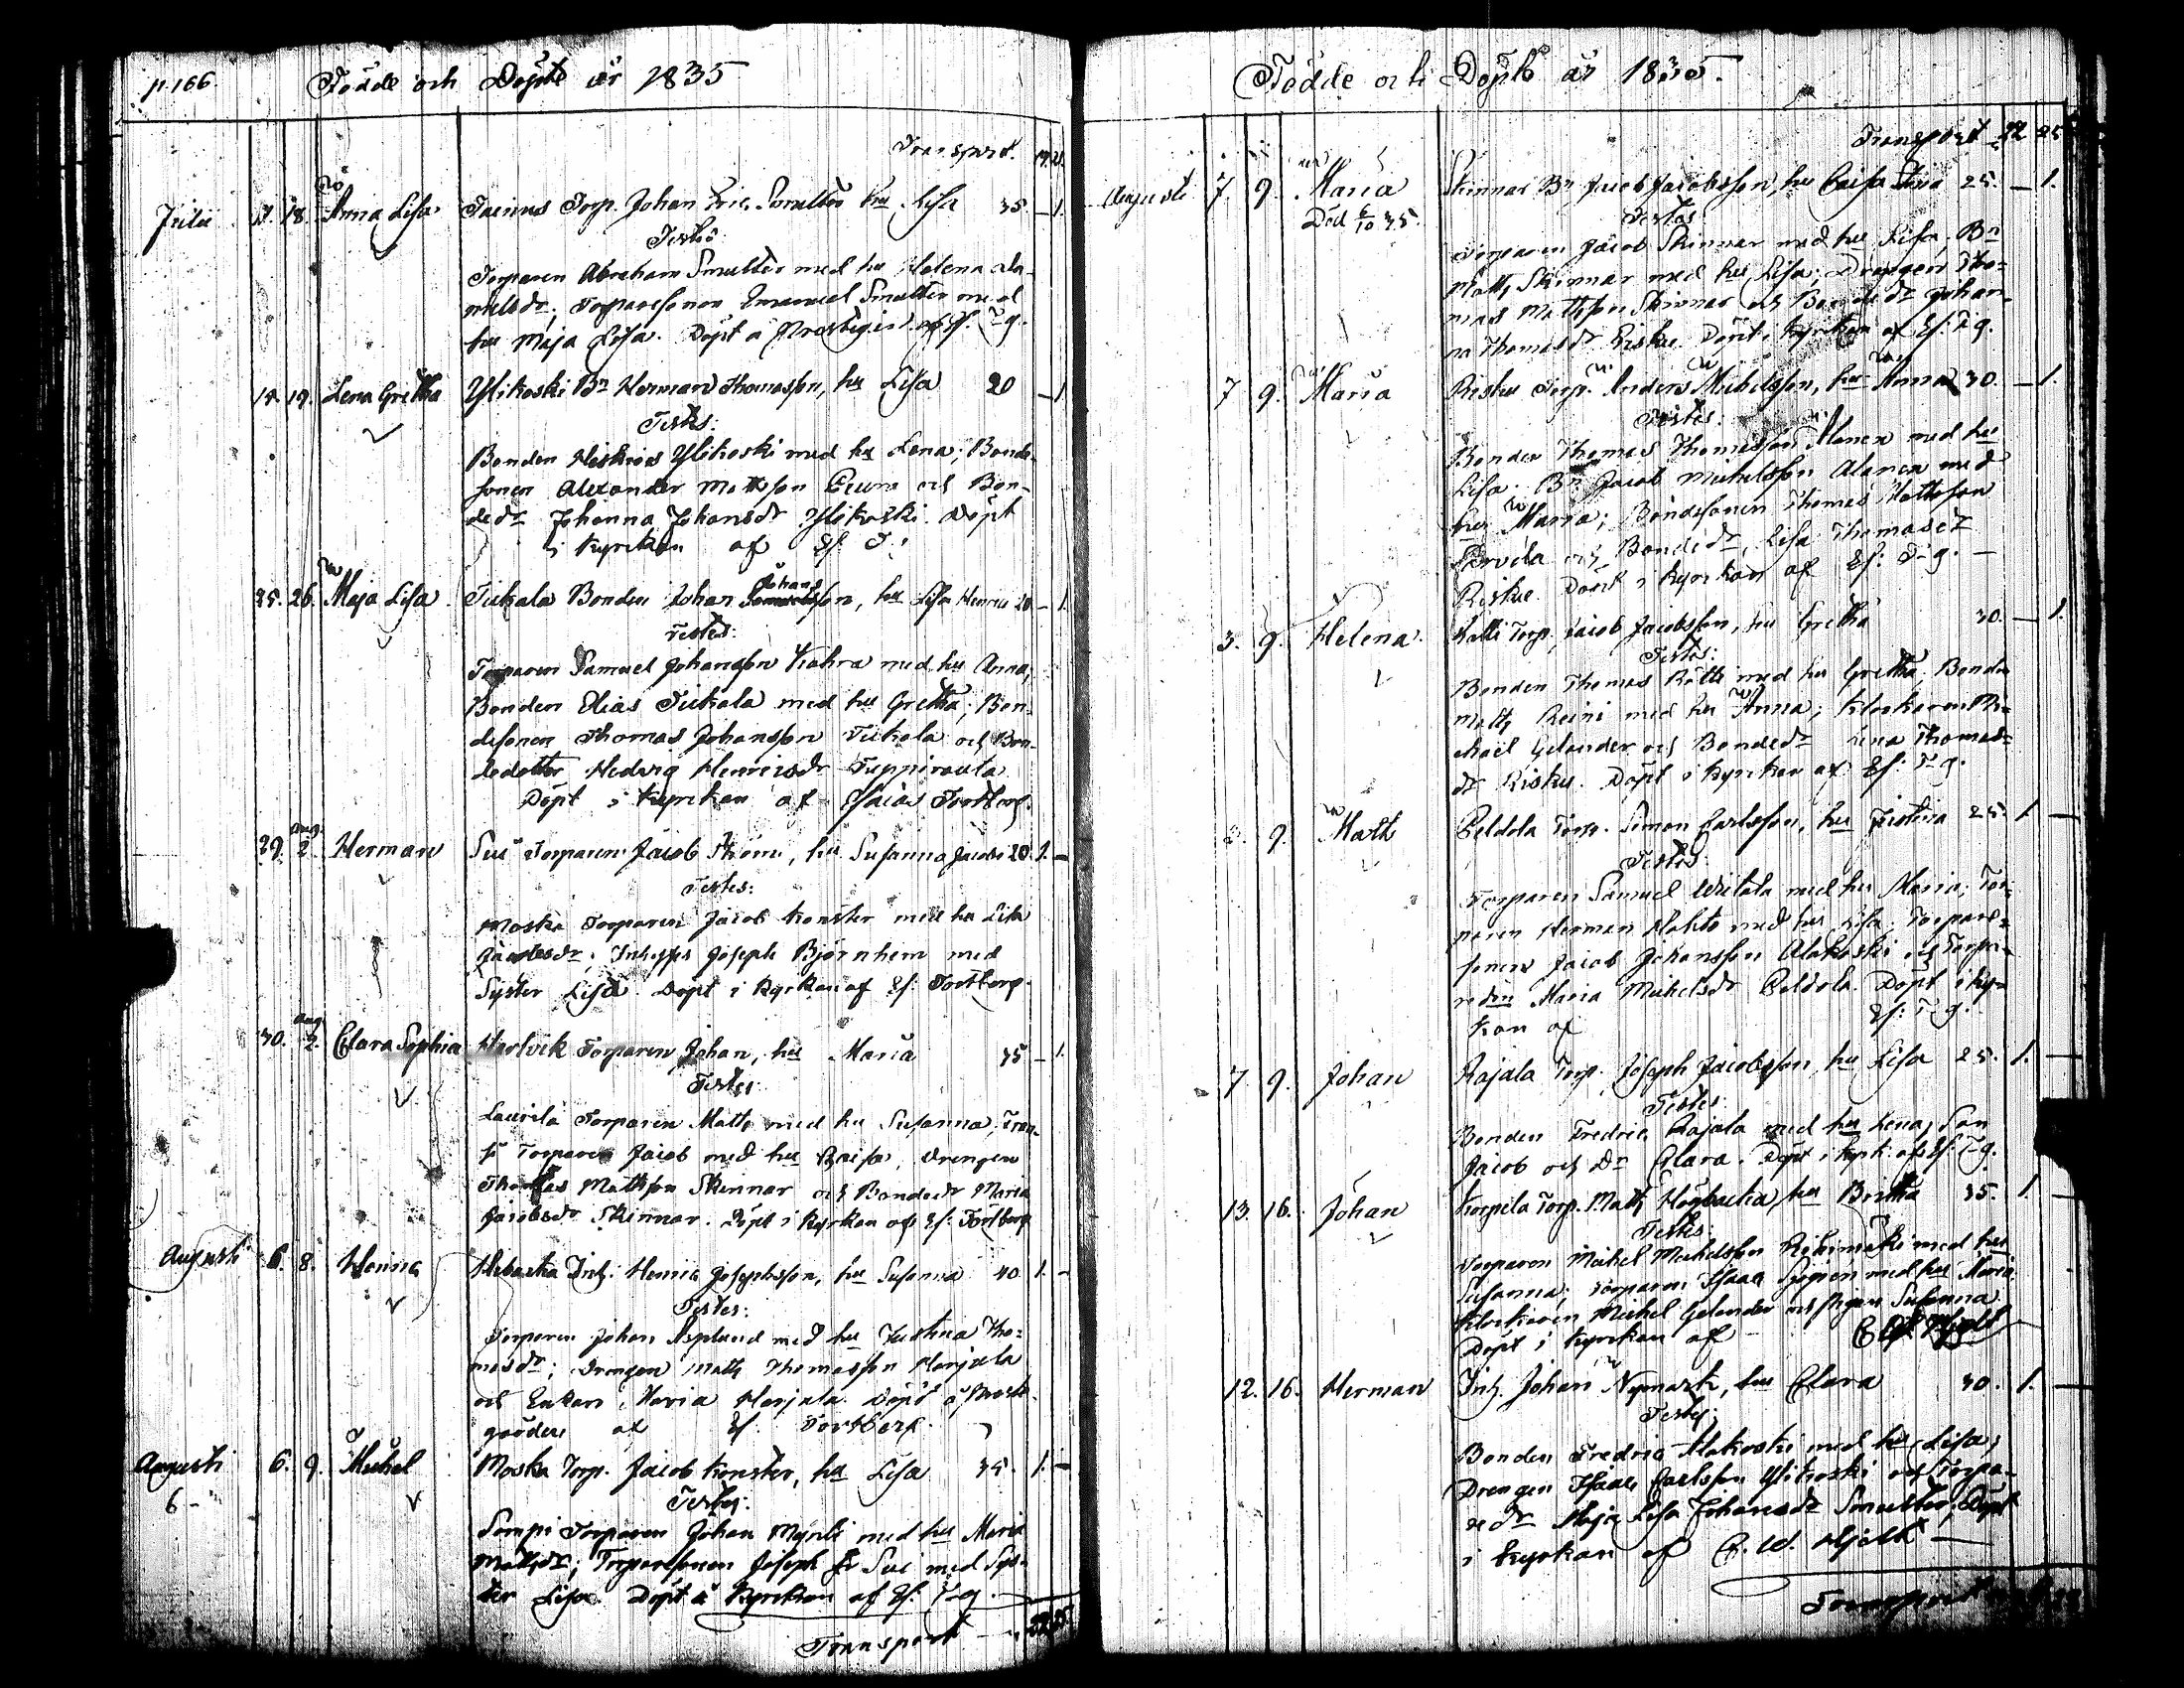 p. 166. Födde och Döpte år 1835
Transport.
Julii 18. Anna Lisa Torp. Johan Eric Smulter hu Lisa 35. — 1.
Testes
Torparen Abraham Smulter med hu Helena
Torparesonen Emanuel Smulter med
hu Maja Lisa. Döpt å Prestegård. af Es. T-g.
19. Lena Gretha Ylikoski Bn Herman Thomasson, hu Lisa 20 — 1
Testes:
Bonden Ylikoski med hu Lena; Bonde-
sonen Alexander Mattsson och Bon-
dedr Johanna Johansdr Ylikoski. Döpt
i Kyrkan af Es. T.
25. 26. Maja Lisa Tiikala Bonden Johan Johansson, hu Lisa Henrics 20 — 1.
Testes:
Torparen Samuel Johansson med hu Anna,
Bonden Elias Tiikala med hu Gretha; Bon-
desonen Thomas Johansson Tiikala och Bon-
dedotter Hedvig Henricsdr
Döpt i Kyrkan af Esaias Fortberg.
29. Aug. 2. Herman Torparen Jacob, hu Susanna Jacobs 20. 1. —
Testes:
Moska Torparen Jacob Konster med hu Lisa
Joseph Björnhem med
Syster Lisa. Döpt i Kyrkan af Es. Fortberg.
30. Aug. 2. Clara Sophia Torparen Johan, hu Maria 35 — 1.
Testes
Laurila Torparen Matts med hu Susanna,
Torparen Jacob med hu Caisa, Drengen
Thomas Mattsson Skinnar och Bondedr Maria
Jacobsdr Skinnar. Döpt i Kyrkan af Es: Fortberg
Augusti 6. 8. Henric Henric Josephsson, hu Susanna 40 1. —
Testes:
Torparen Johan Asplund med hu Justina Tho-
masdr; Drengen Matts Thomasson Harjula
och Enkan Maria Harjula. Döpt å Prest-
gården af Es. Fortberg.
Augusti 6. 9. Michel Moska Torp. Jacob Konster, hu Lisa 35. 1. —
6 - Testes:
Sompi Torparen Johan med hu Maria
Mattsdr; Torparesonen Joseph med Sys-
ter Lisa. Döpt i Kyrkan af Es. T-g.
Transport
Födde och Döpte år 1835.
Transport 22 25
Augusti 7. 9. Maria Skinnar Bn Jacob Jacobsson, hu Caisa Stina 25. — 1.
Död 6/10 35. Testes
Torparen Jacob Skinnar med hu Lisa, Bn
Matts Skinnar med hu Lisa; Drengen Tho-
mas Mattsson Skinnar och Bondedr Johan-
na Thomasdr Riskue. Döpt i Kyrkan af Es: T-g.
7 9. Maria Riskue Torp. Anders Michelsson, hu Anna 30. — 1.
Testes:
Bonden Thomas Thomasson Alanen med hu
Lisa. Bn Jacob Michelsson Alanen med
hu Maria; Bondesonen Thomas Mattsson
och Bondedr, Lisa Thomasdr
Riskue. Döpt i Kyrkan af Es: T-g. —
3. 9. Helena Torp. Jacob Jacobsson, hu Gretha 30. — 1.
Testes:
Bonden Thomas med hu Gretha, Bonden
Matts Reini med hu Anna; Klockaren Mi-
chaël Gelander och Bondedr Lena Thomas-
dr Riskue. Döpt i Kyrkan af Es: T-g.
9. Matts Peldola Torp. Simon Carlsson, hu 25. 1. —
Testes
Torparen Samuel med hu Maria; Tor-
paren Herman med hu Lisa, Torpare-
sonen Jacob Johansson Alakoski och Torpa-
redr Maria Michelsdr Peldola. Döpt i Kyr-
kan af Es: T-g.
7. 9. Johan Rajala Torp. Joseph Jacobsson, hu Lisa 25. 1. —
Testes
Bonden Fredric Rajala med hu Lena, Son
Jacob och Dr Clara. Döpt i Kyrk. af Es: T-g.
13. 16. Johan Korpela Torp. Matts, hu Britha 35. 1. —
Testes:
Torparen Michel Michelsson Riihimäki med hu
Susanna; Torparen Isaac med hu Maria.
Klockaren Michel Gelander och Pigan Susanna.
Döpt i Kyrkan af
12. 16. Herman Inh. Johan Nymark, hu Clara 30. 1. —
Testes:
Bonden Fredric Alakoski med hu Lisa;
Drengen Isaac Carlsson Ylikoski och Torpa-
redr Maja Lisa Johansdr Smulter, Döpt
i Kyrkan af C. W. Hjelt —
Transport